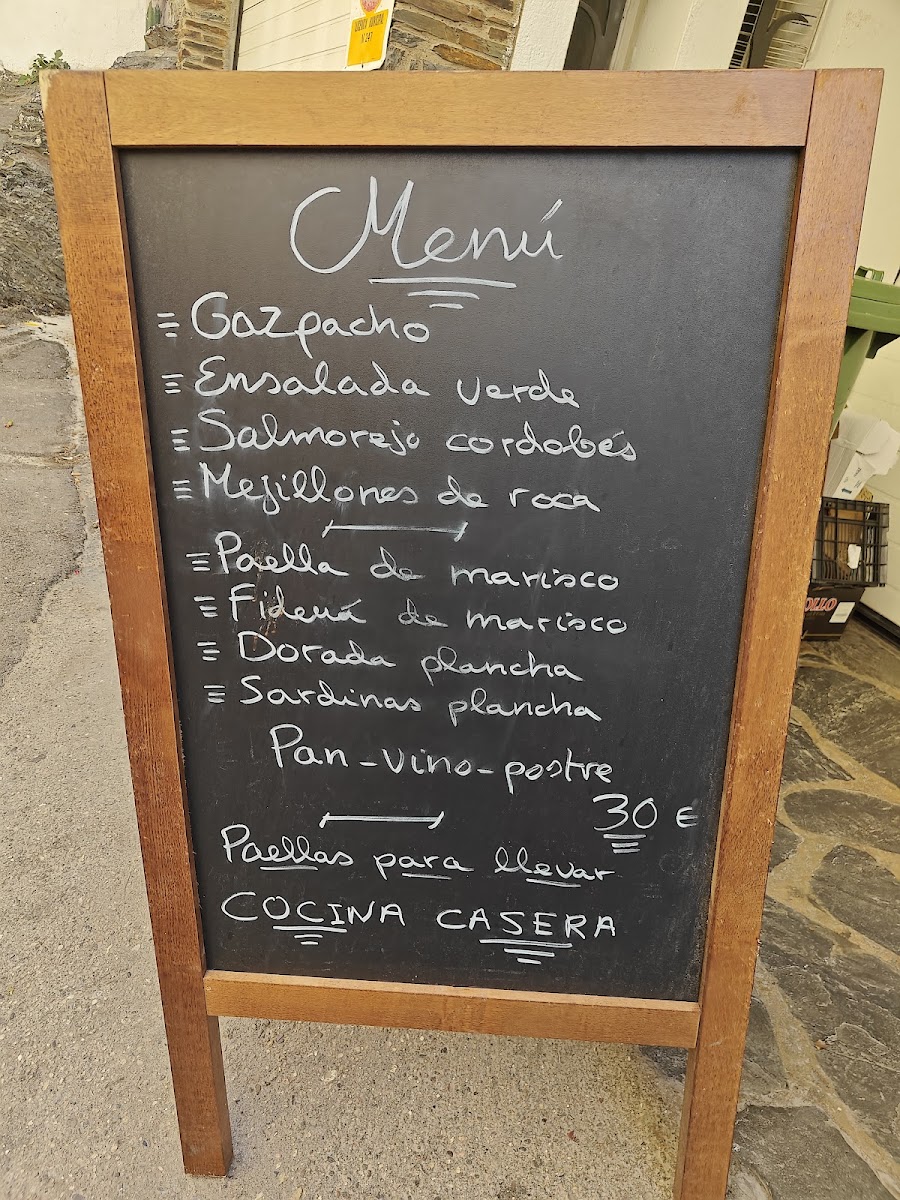 Menú
Gazpacho
Ensalada verde
Salmorejo cordobés
Mejillones de roca
Paella de marisco
Fideuá de marisco
Dorada plancha
Sardinas plancha
Pan - vino - postre
30 €
Paellas para llevar
COCINA CASERA